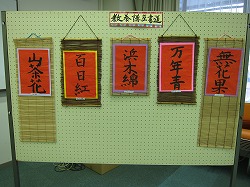 教養講座書道
山茶花
百日紅
浜木綿
万年青
無花果